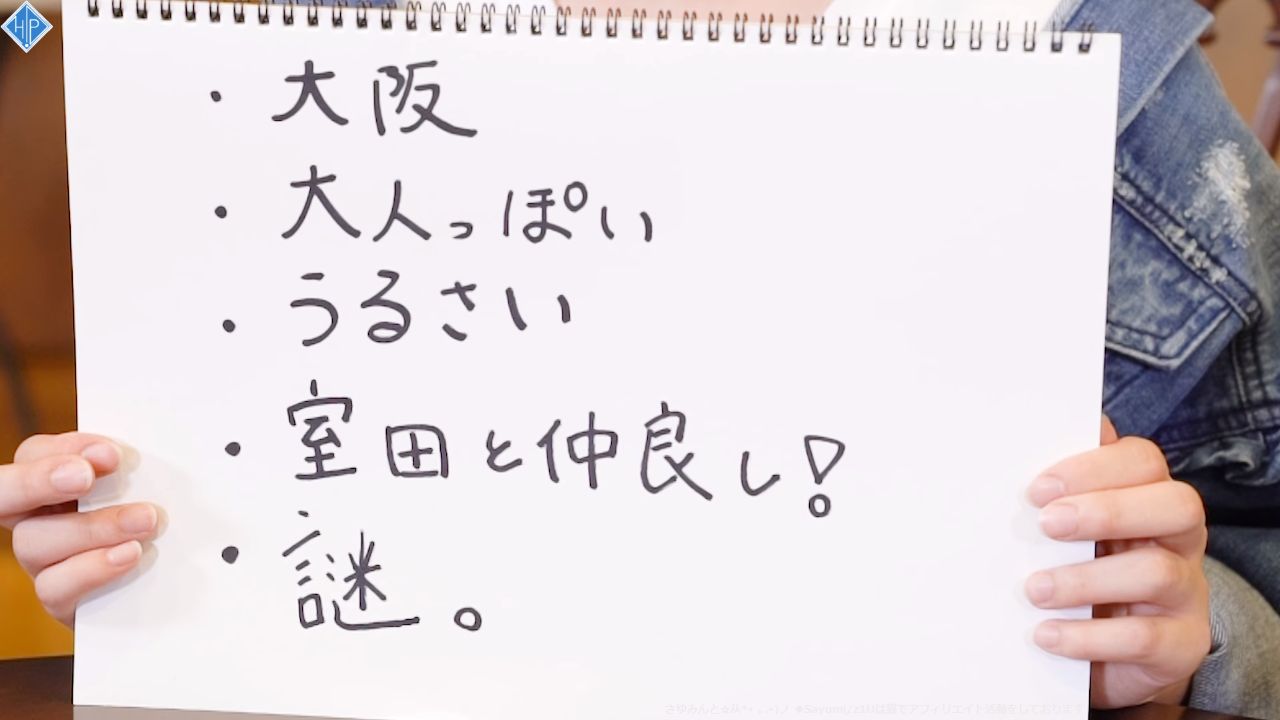 ・大阪
・大人っぽい
・うるさい
・室田と仲良し!
・謎。